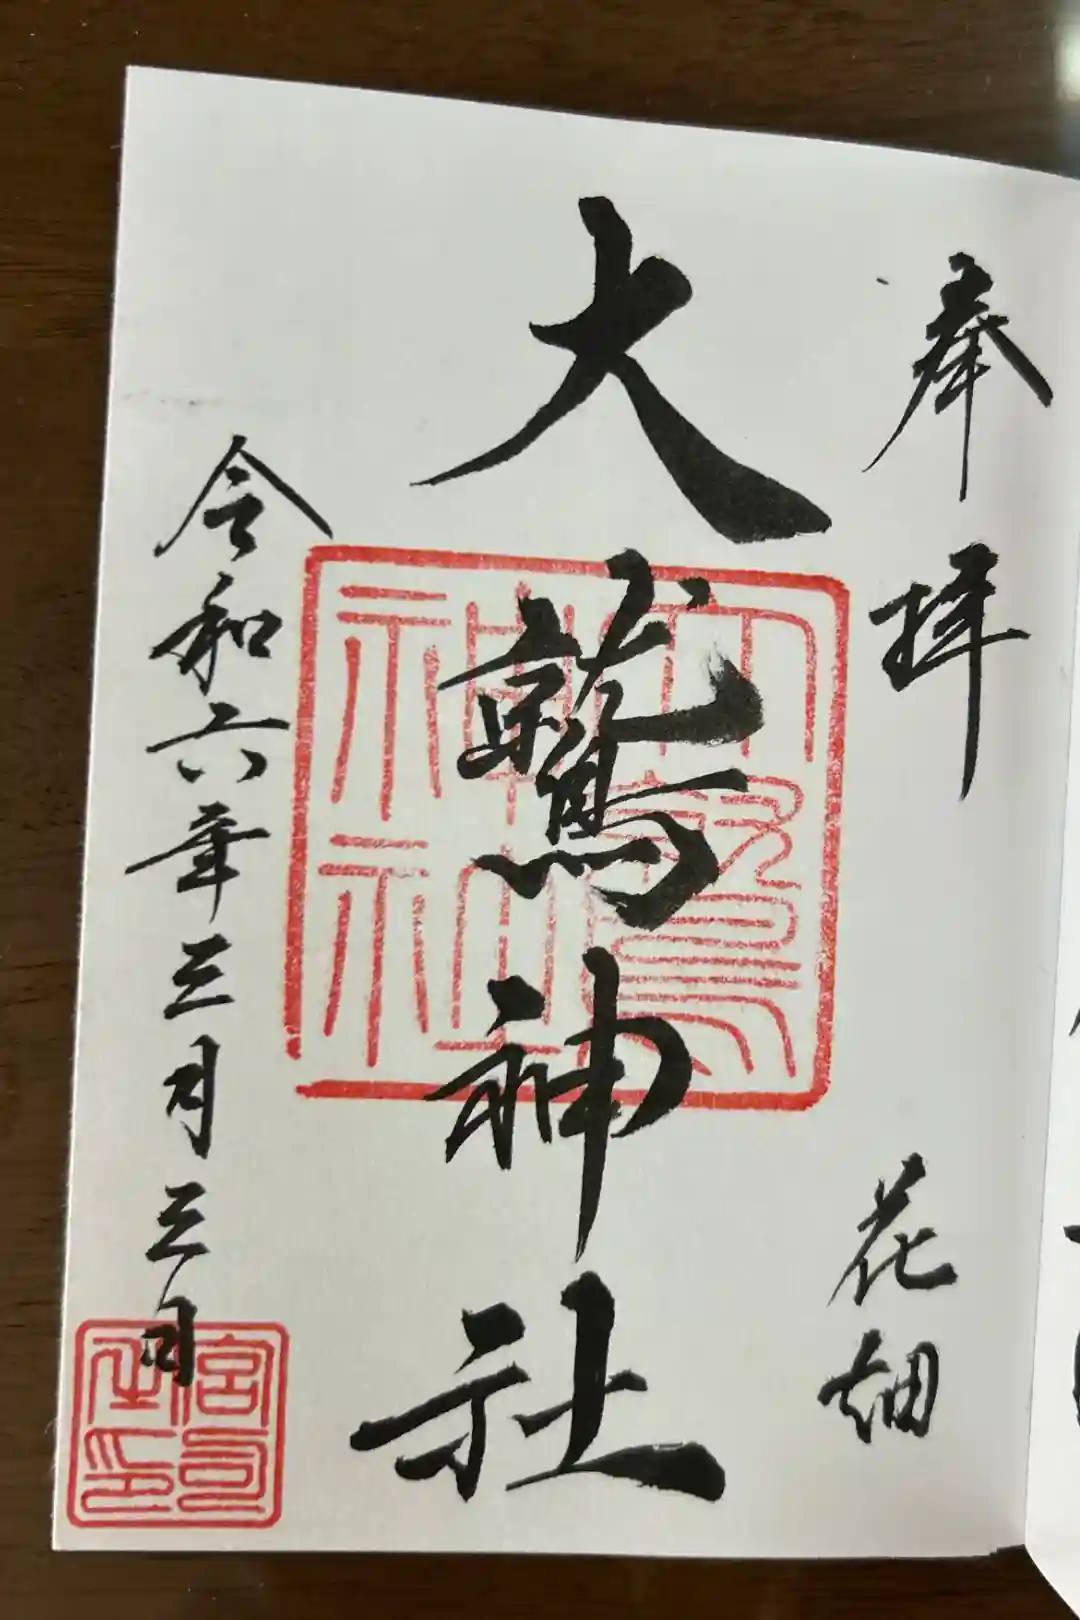 奉拝 花畑
大鷲神社
令和六年三月三日
大鷲神社
宮司之印